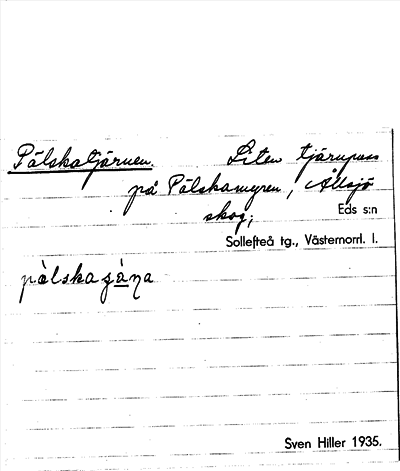 Pålskatjärnen. Liten tjärnpuss
på Pålskamyren, Allsjö
skog, Eds s:n
Sollefteå tg., Västernorrl. l.
Sven Hiller 1935.